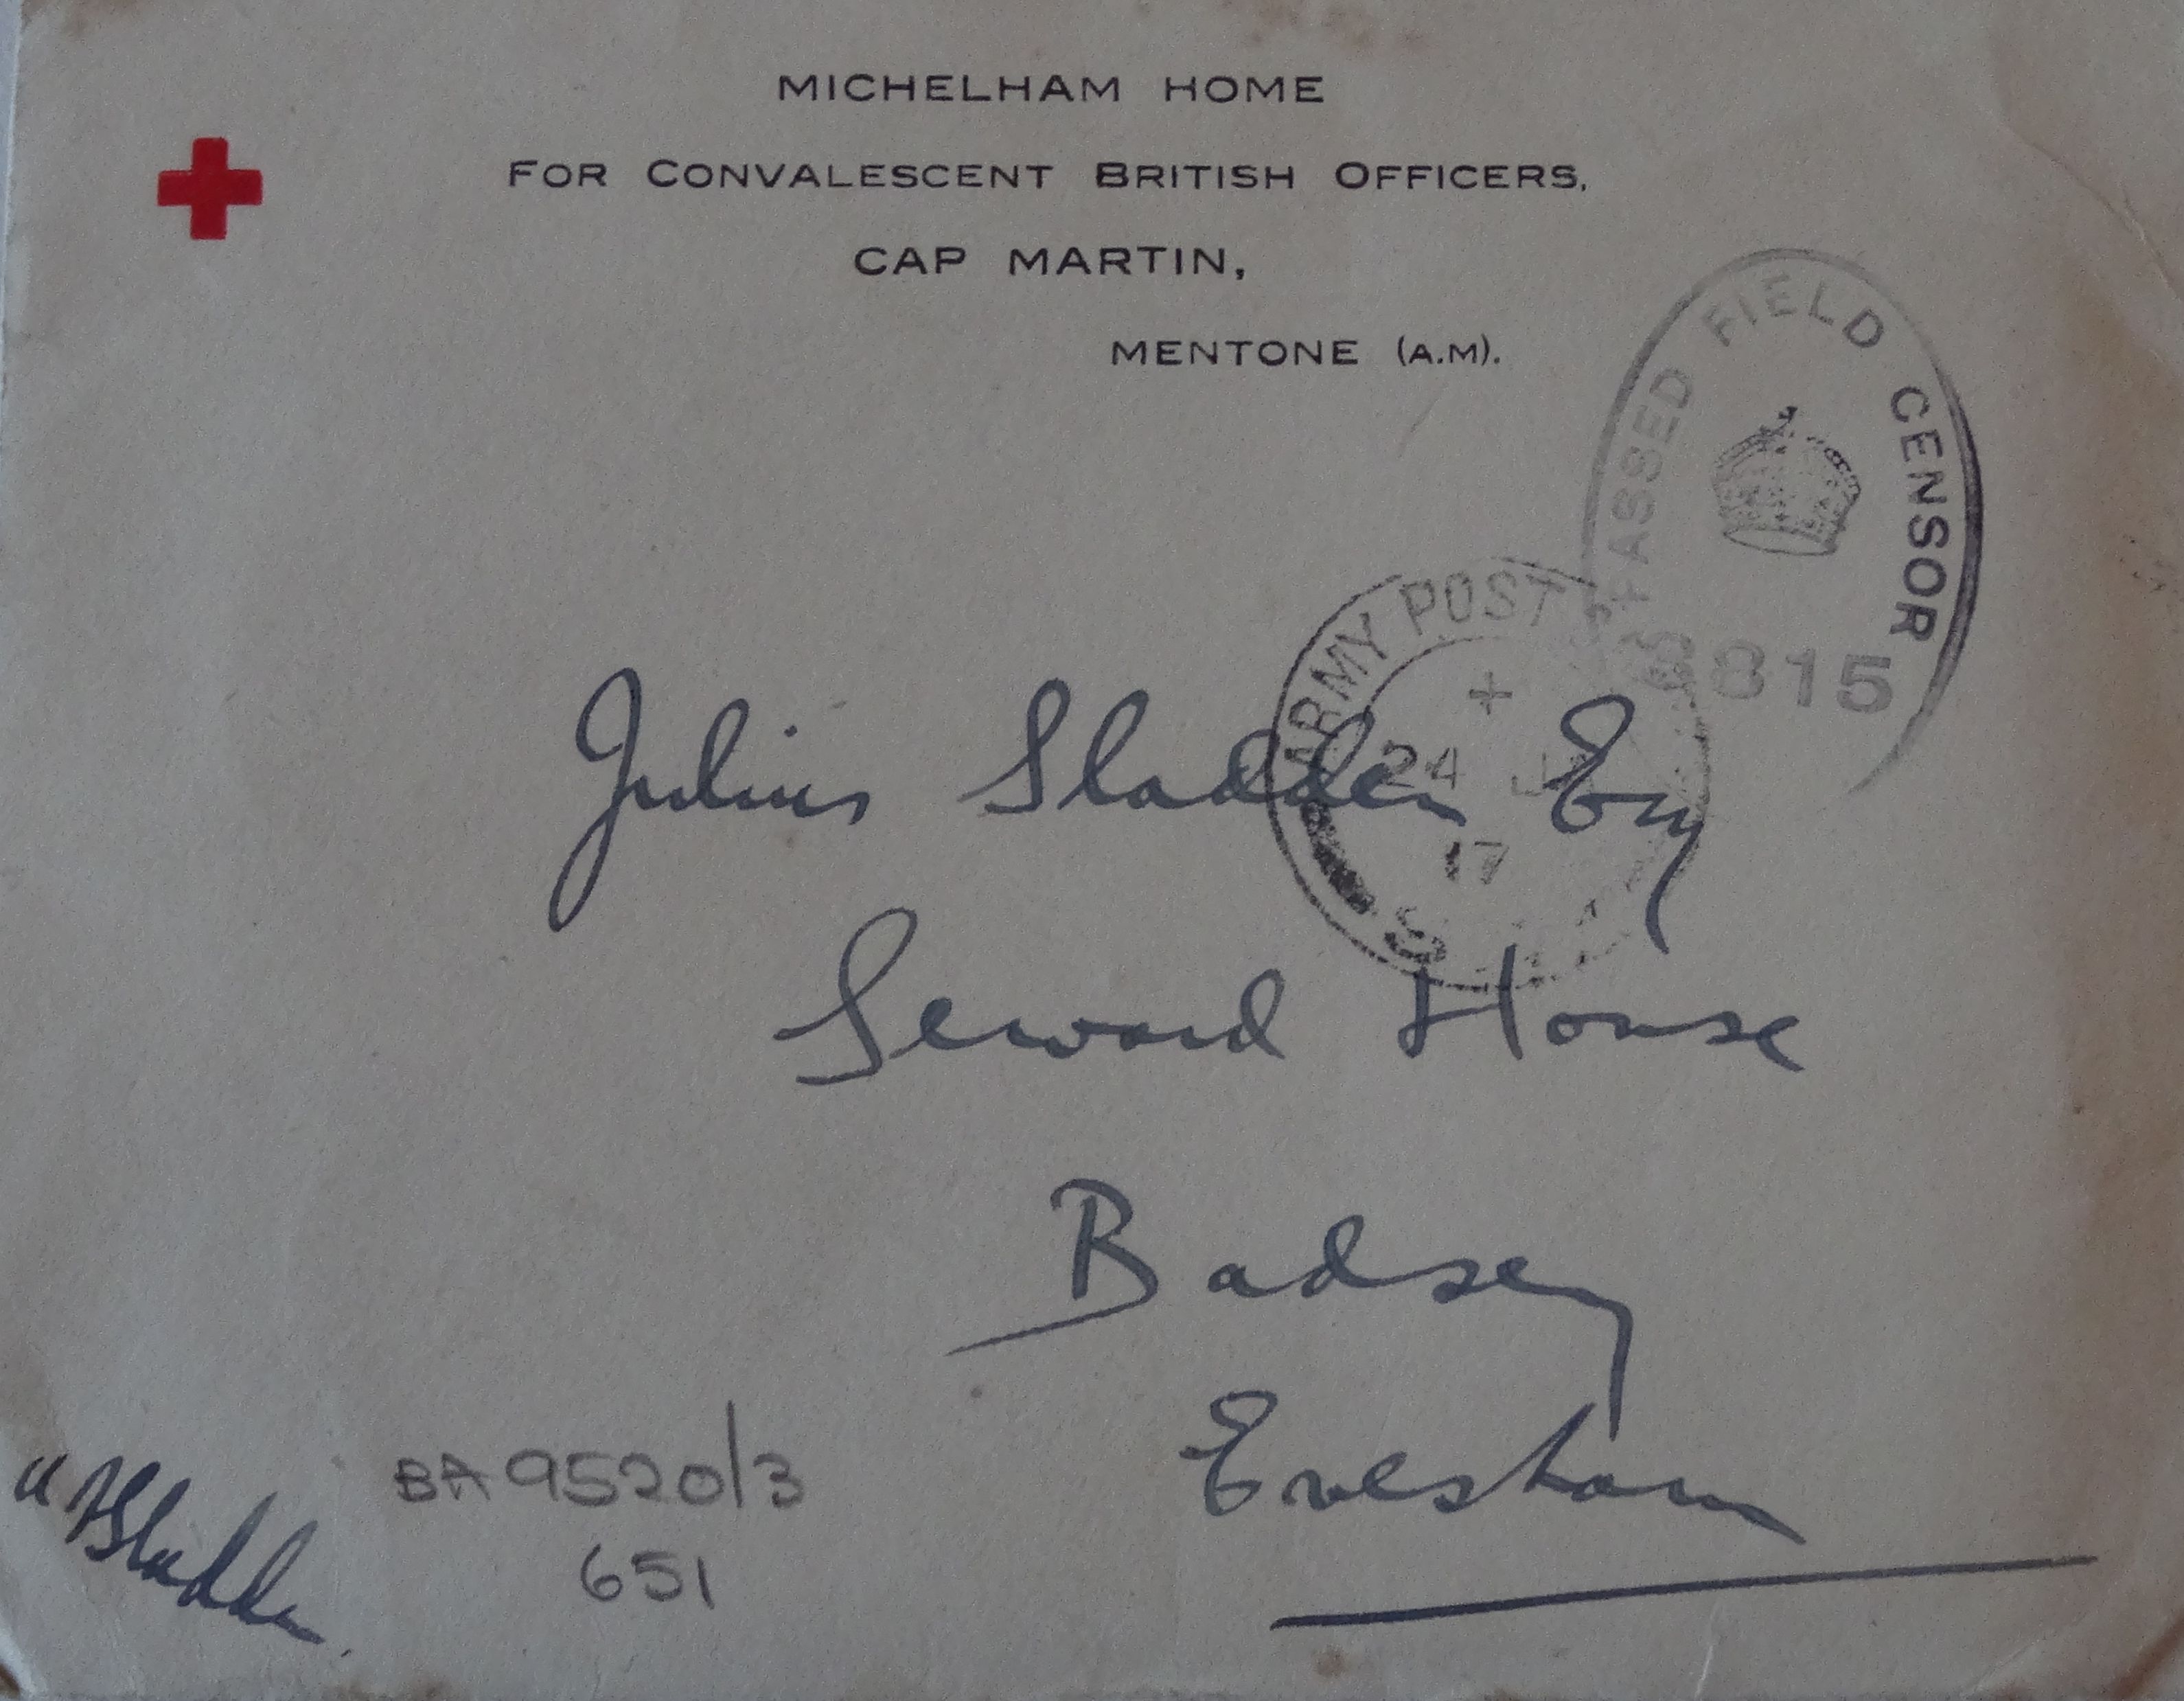 MICHELHAM HOME
FOR CONVALESCENT BRITISH OFFICERS,
CAP MARTIN,
MENTONE (A.M).
PASSED FIELD CENSOR
3815
ARMY POST
24 JA
17
S
Julius Sladden Esq
Seward House
Badsey
Evesham
BA 9520/3
651
Sladden.